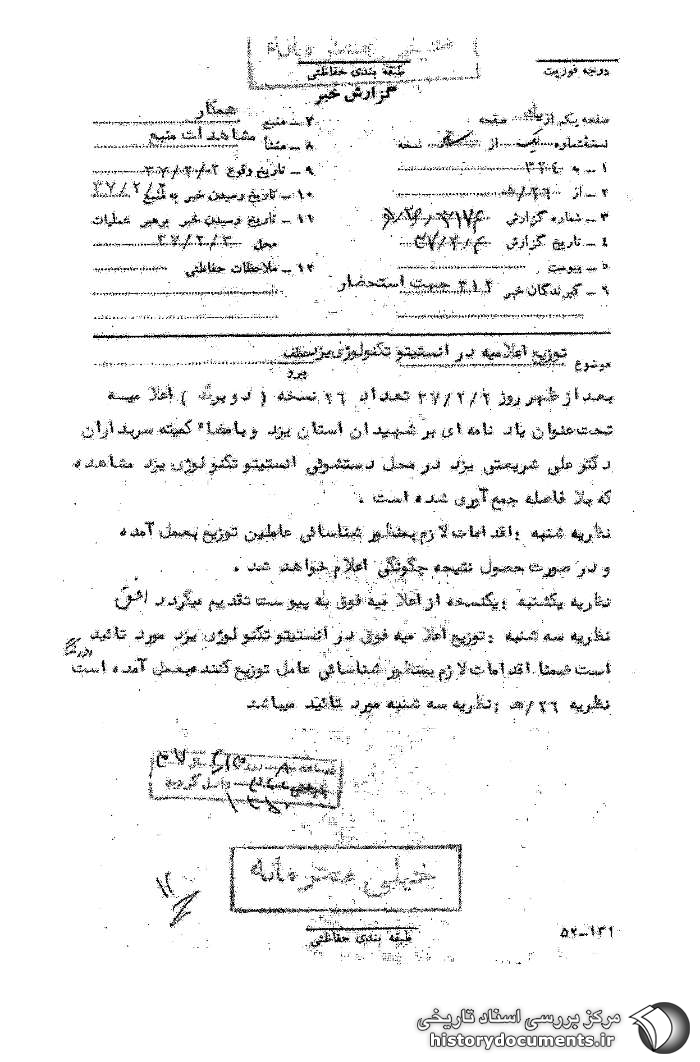 خیلی محرمانه
درجه فوریت
طبقه بندی حفاظتی
گزارش خبر
صفحه یکم از یک صفحه
نسخه شماره یک از نسخه
۱ ـ به ۳۲۴
۲ ـ از ۲۶/ﻫ
۳ ـ شماره گزارش
٤ ـ تاریخ گزارش ۳۷/۲/۴
٥ ـ پیوست
۶ ـ گیرندگان خبر ۳۱۲ جهت استحضار
۷ ـ منبع همکار
۸ ـ منشأ مشاهدات منبع
۹ ـ تاریخ وقوع ۳۷/۲/۲
۱۰ ـ تاریخ رسیدن خبر به منبع ۳۷/۲/۲
۱۱ ـ تاریخ رسیدن خبر برهبر عملیات
محل ۳۷/۲/۳
۱۲ ـ ملاحظات حفاظتی
موضوع توزیع اعلامیه در انستیتو تکنولوژی یزد
پیرو
بعد از ظهر روز ۳۷/۲/۲ تعداد ۲۶ نسخه ( دو برگ ) اعلامیه
تحت عنوان یاد نامه ای بر شهیدان استان یزد و بامضاء کمیته سربداران
دکتر علی شریعتی یزد در محل دستشوئی انستیتو تکنولوژی یزد مشاهده
که بلا فاصله جمع آوری شده است .
نظریه شنبه : اقدامات لازم بمنظور شناسائی عاملین توزیع بعمل آمده
و در صورت حصول نتیجه چگونگی اعلام خواهد شد .
نظریه یکشنبه : یکنسخه از اعلا میه فوق به پیوست تقدیم میگردد افق
نظریه سه شنبه : توزیع اعلا میه فوق در انستیتو تکنولوژی یزد مورد تائید
است ضمنا اقدامات لازم بمنظور شناسائی عامل توزیع کننده بعمل آمده است
نظریه ۲۶/ﻫ : نظریه سه شنبه مورد تائید میباشد
خیلی محرمانه
طبقه بندی حفاظتی
۵۲-۱۳۱
مرکز بررسی اسناد تاریخی
historydocuments.ir